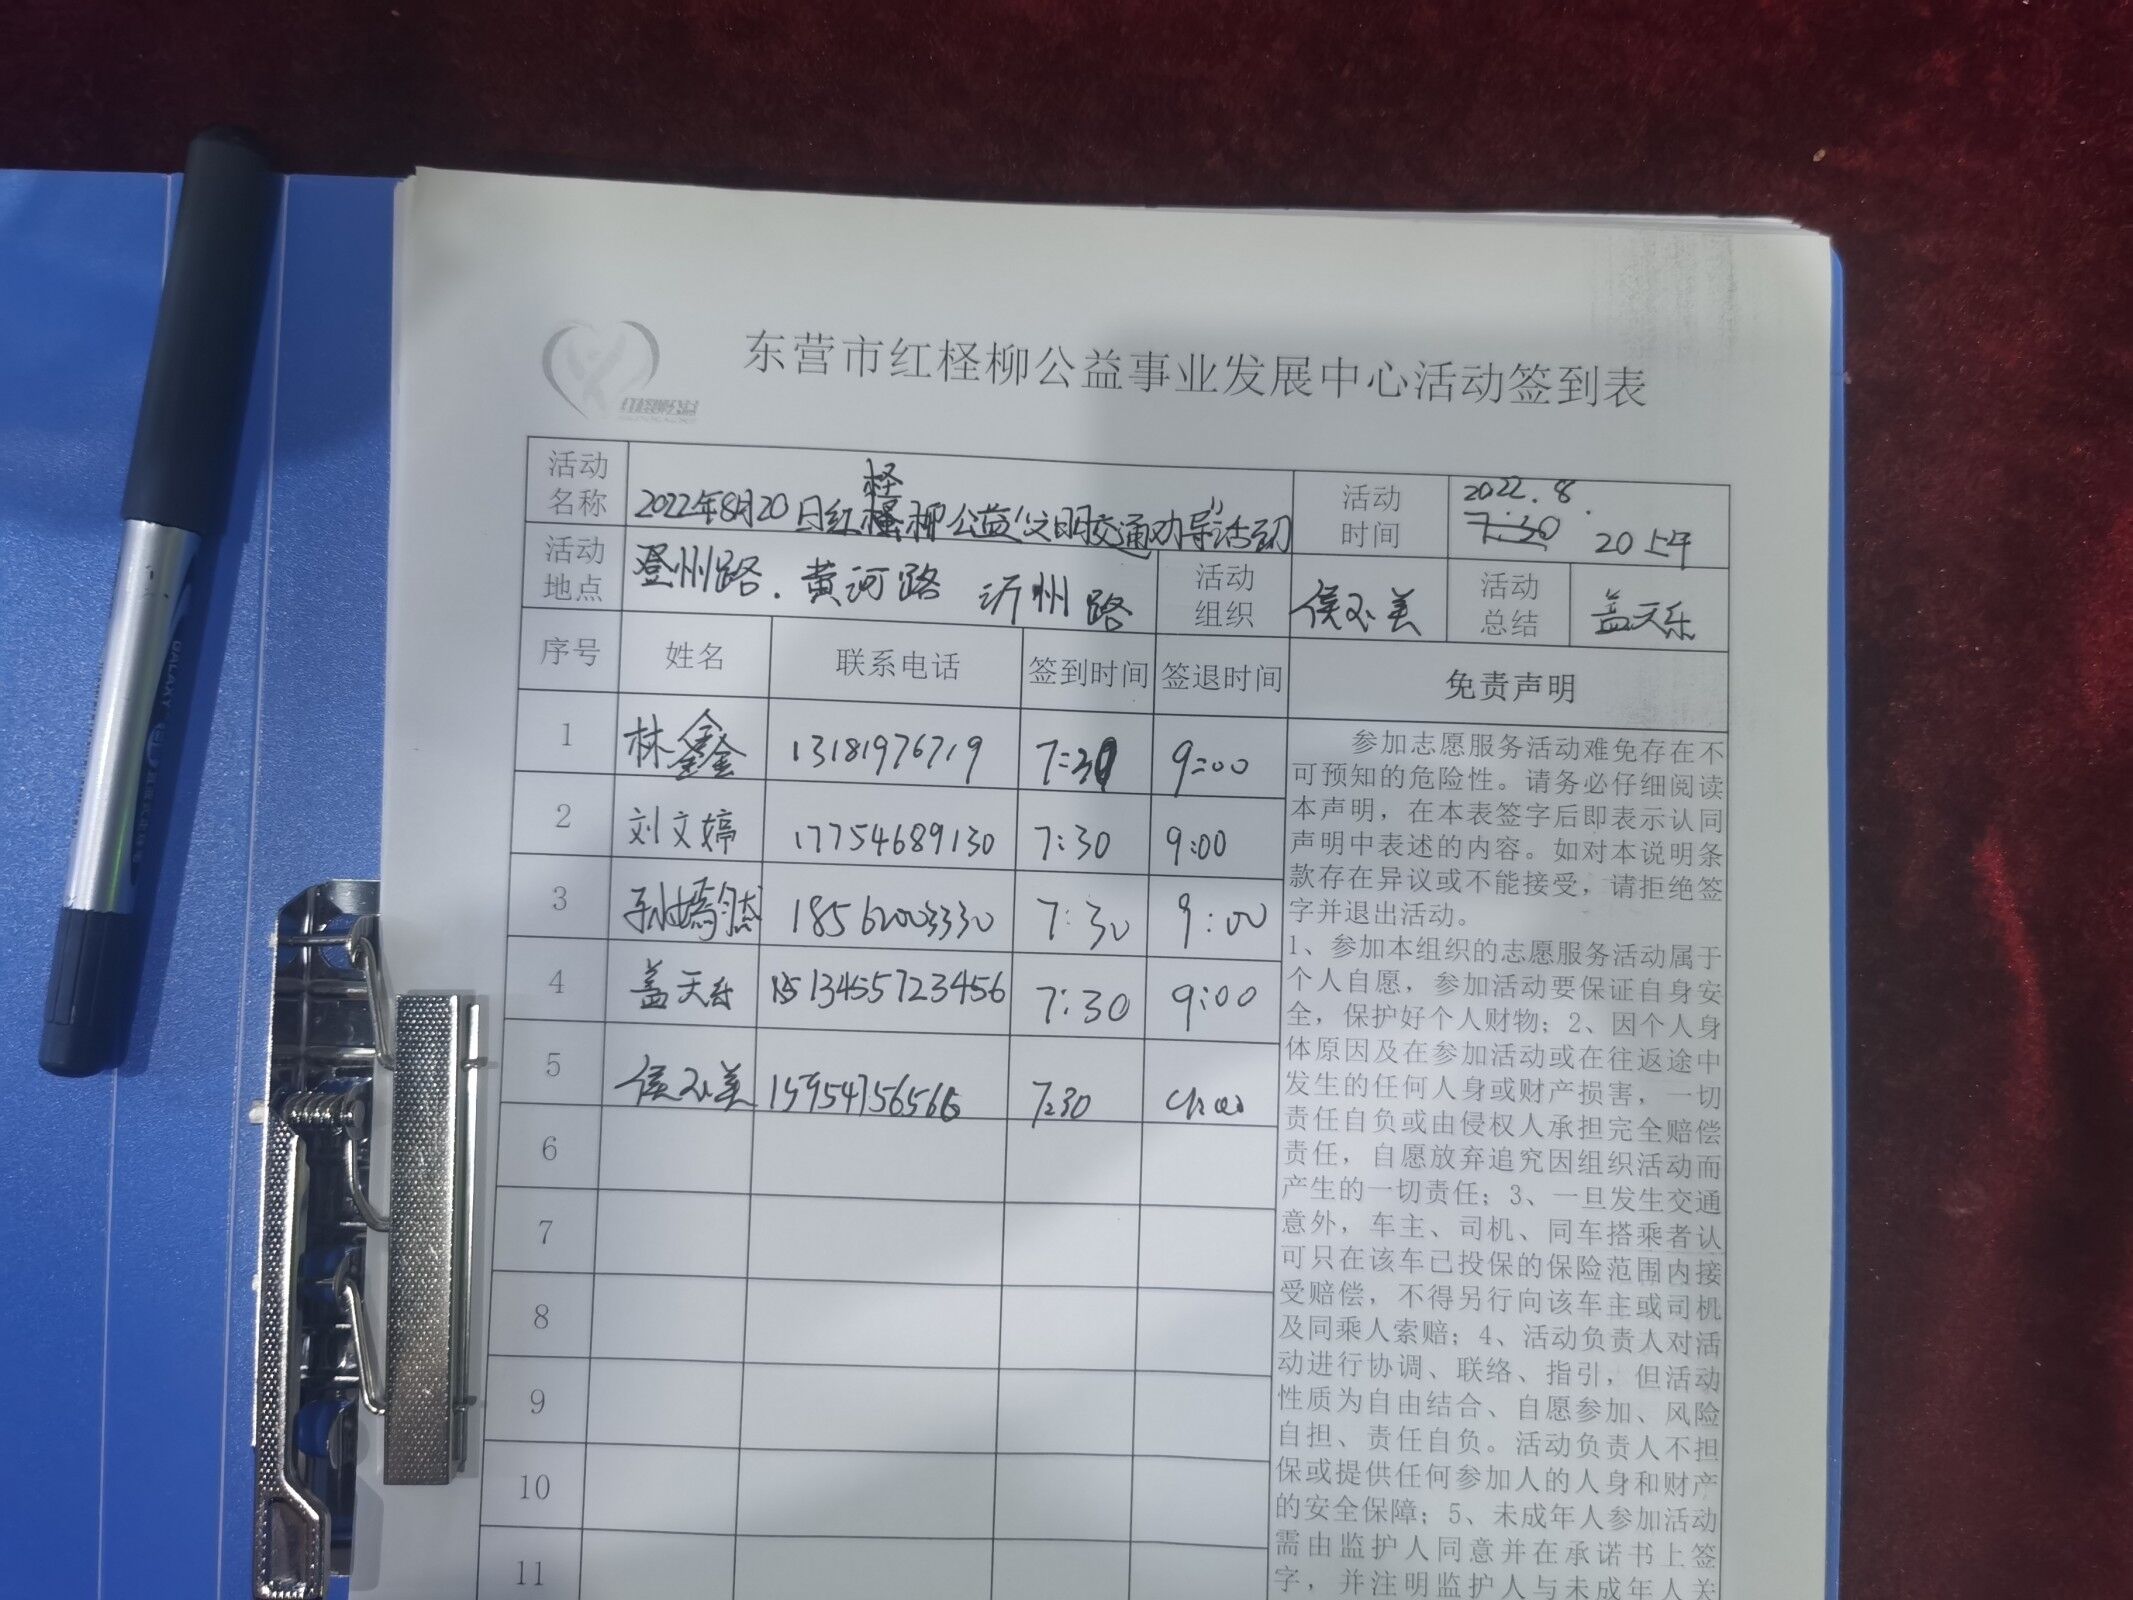 东营市红柽柳公益事业发展中心活动签到表
红柽柳公益
活动名称 2022年8月20日红柽柳公益“文明交通劝导”活动 活动时间 2022.8. 20上午
7:30
活动地点 登州路.黄河路 沂州路 活动组织 侯不美 活动总结 盖天乐
序号 姓名 联系电话 签到时间 签退时间 免责声明
1 林鑫 13181976719 7:30 9:00
2 刘文婷 17754689130 7:30 9:00
3 孙嫣然 18562003330 7:30 9:00
4 盖天乐 7:30 9:00
5 侯不美 15954756566 7:30
6
7
8
9
10
11
参加志愿服务活动难免存在不
可预知的危险性。请务必仔细阅读
本声明，在本表签字后即表示认同
声明中表述的内容。如对本说明条
款存在异议或不能接受，请拒绝签
字并退出活动。
1、参加本组织的志愿服务活动属于
个人自愿，参加活动要保证自身安
全，保护好个人财物；2、因个人身
体原因及在参加活动或在往返途中
发生的任何人身或财产损害，一切
责任自负或由侵权人承担完全赔偿
责任，自愿放弃追究因组织活动而
产生的一切责任；3、一旦发生交通
意外，车主、司机、同车搭乘者认
可只在该车已投保的保险范围内接
受赔偿，不得另行向该车主或司机
及同乘人索赔；4、活动负责人对活
动进行协调、联络、指引，但活动
性质为自由结合、自愿参加、风险
自担、责任自负。活动负责人不担
保或提供任何参加人的人身和财产
的安全保障；5、未成年人参加活动
需由监护人同意并在承诺书上签
字，并注明监护人与未成年人关
GALAXY